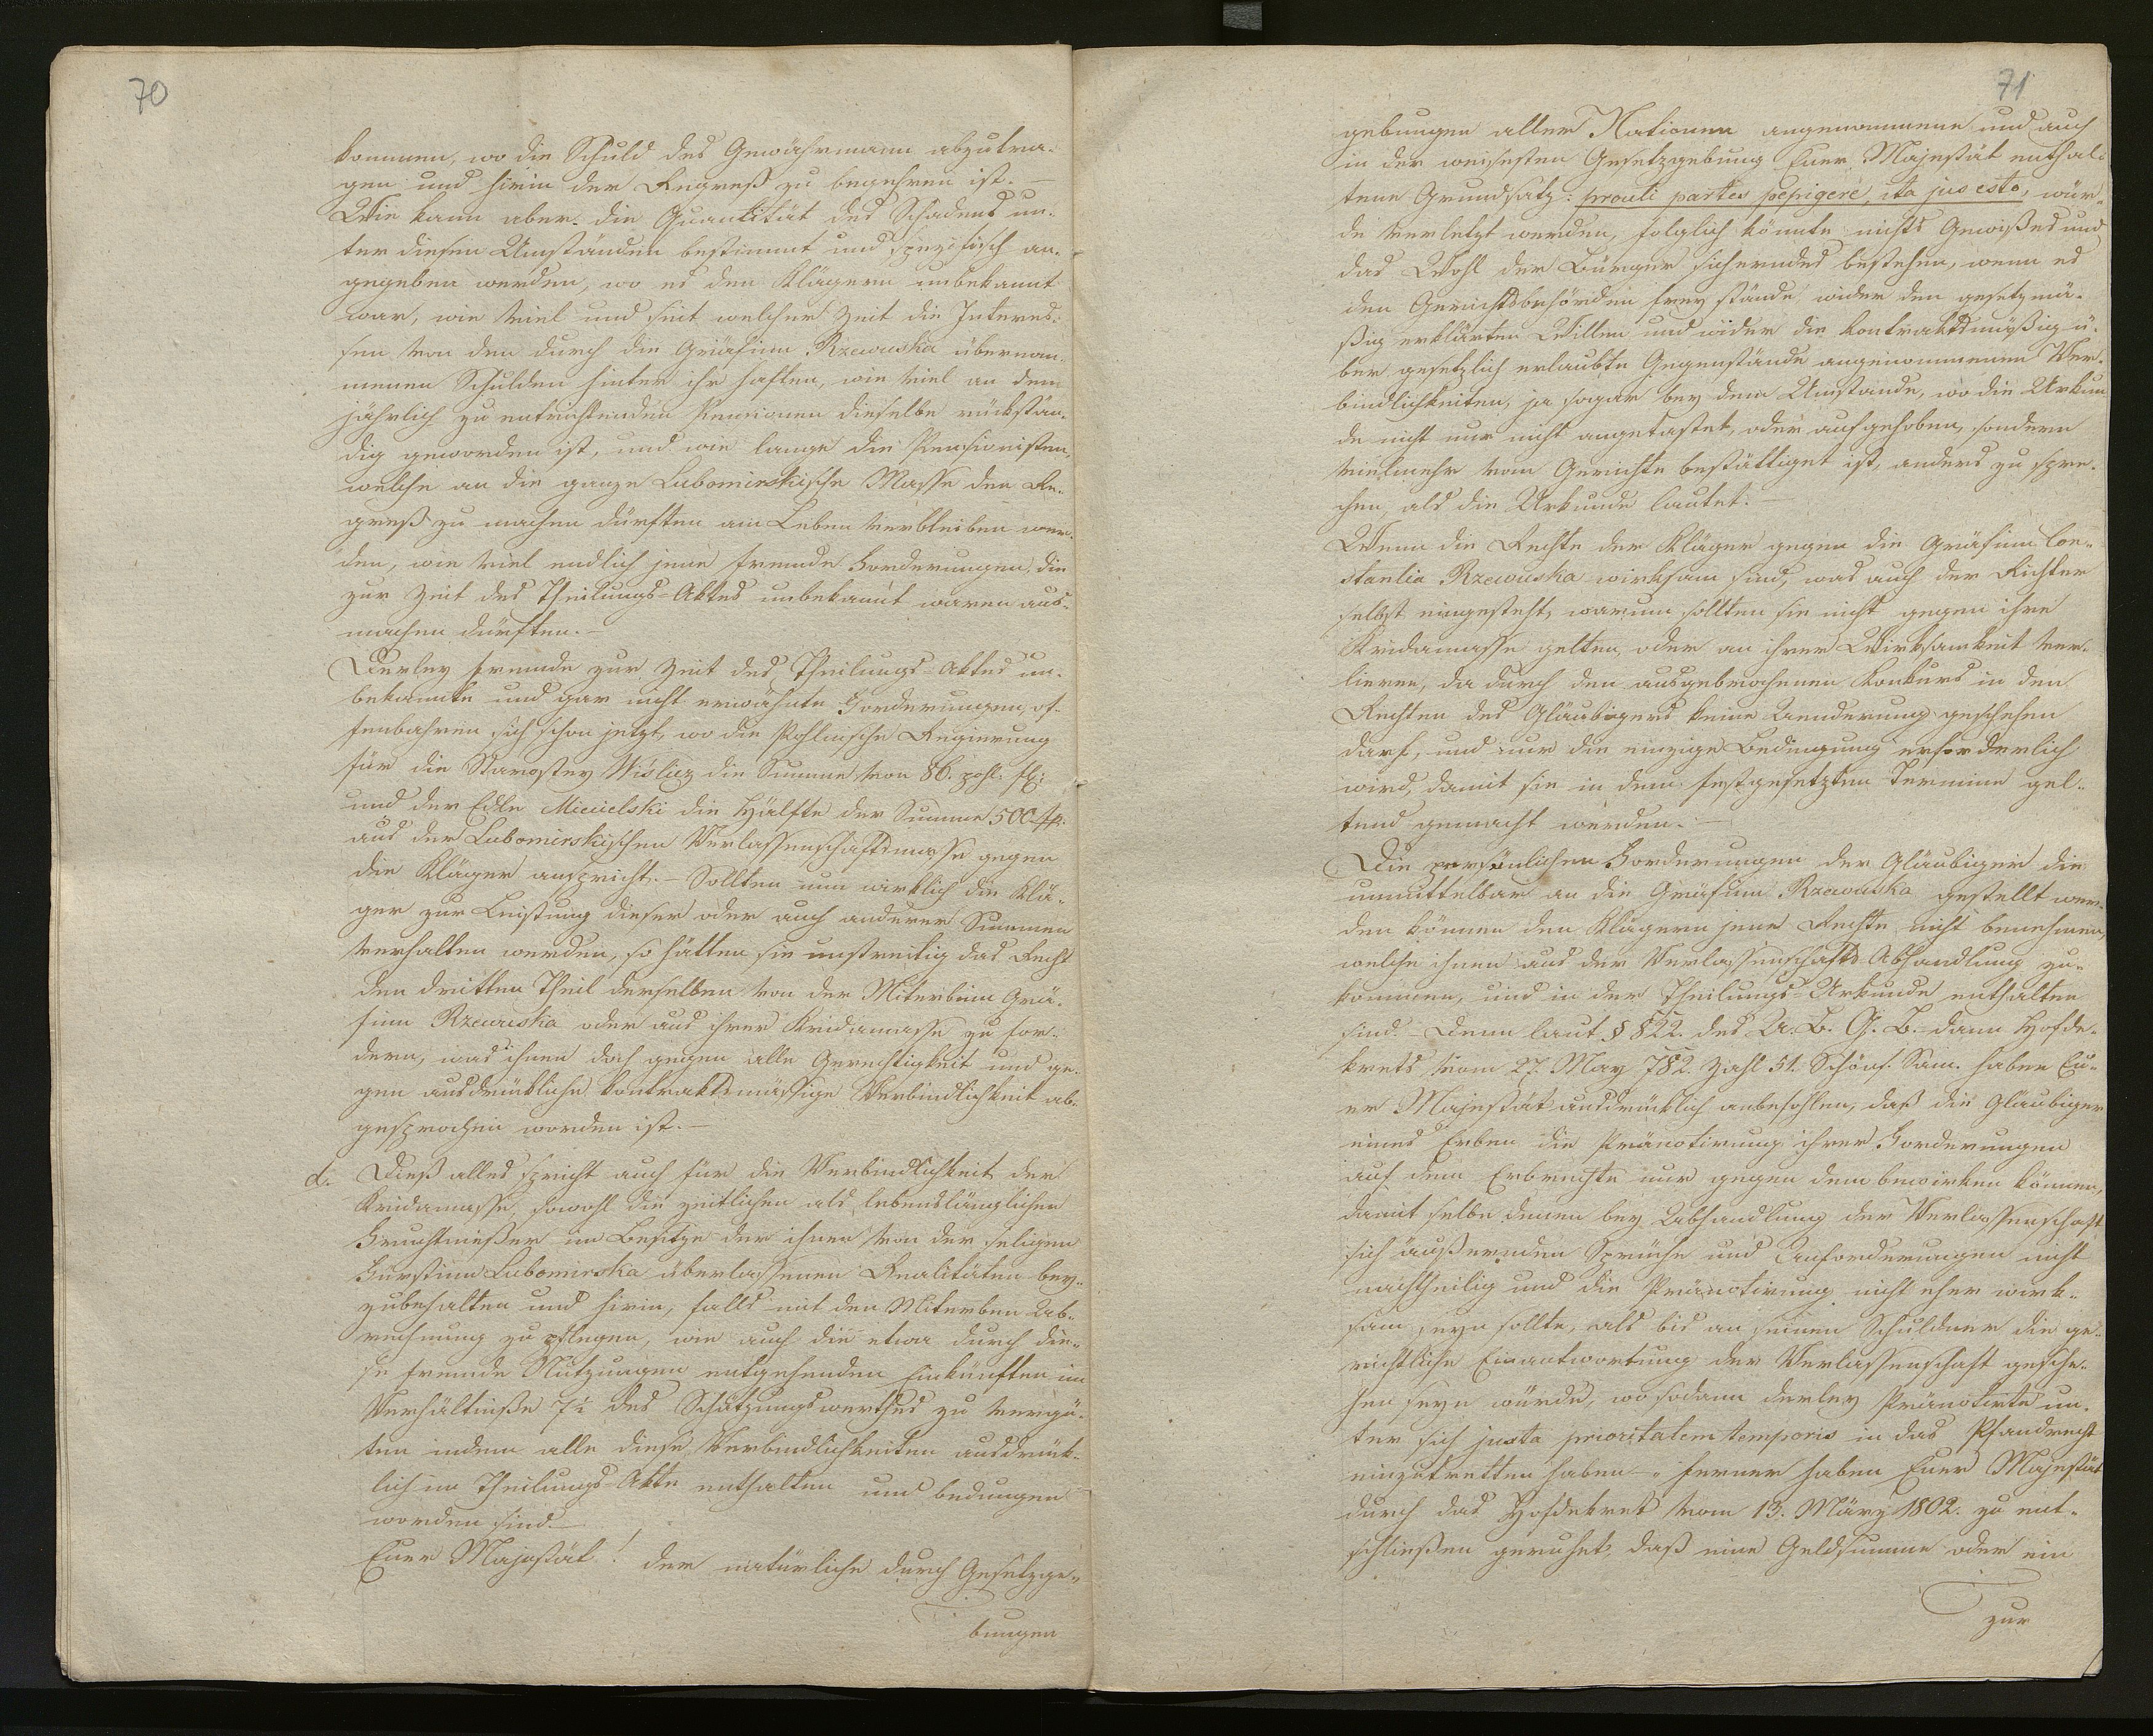 70
kommen, wo die Schuld des Gewährmann abzutra-
gen und hirin der Regreß zu begehren ist. —
Wie kann aber die Quantität des Schadens un-
ter diesen Umständen bestimmt und spezifisch an-
gegeben werden, wo es den Klägern unbekannt
war, wie viel und seit welcher Zeit die Interes-
sen von den durch die Gräfinn Rzewuska übernom-
menen Schulden hinter ihr haften, wie viel an dem
jährlich zu entrichtenden Pensionen dieselbe rükstän-
dig geworden ist, und wie lange die Pensionisten,
welche an die ganze Lubomirskische Masse den Re-
greß zu machen dürften am Leben verbleiben wer-
den, wie viel endlich jene fremde Forderungen die
zur Zeit des Theilungs-Aktes unbekannt waren aus-
machen dürften. —
Derley fremde zur Zeit des Theilungs-Aktes un-
bekannte und gar nicht erwähnte Forderungen of-
fenbahren sich schon jetzt, wo die Pohlnische Regierung
für die Starostey Wislicz die Summe von 86. pohl. fl:
und der Edle Miecielski die Hälfte der Summe 500 #.
aus der Lubomirskischen Verlassenschaftsmasse gegen
die Kläger anspricht. — Sollten nun wirklich die Klä-
ger zur Leistung dieser oder auch anderer Summen
verhalten werden, so hätten sie unstreitig das Recht
den dritten Theil derselben von der Miterbinn Grä-
finn Rzewuska oder aus ihrer Kridamasse zu for-
dern, was ihnen doch gegen alle Gerechtigkeit und ge-
gen ausdrükliche kontraktsmässige Verbindlichkeit ab-
gesprochen worden ist. —
d. Dieß alles spricht auch für die Verbindlichkeit der
Kridamasse, sowohl die zeitlichen als lebenslänglichen
Fruchtnießer im Besitze der ihnen von der seligen
Fürstinn Lubomirska überlassenen Realitäten bey-
zubehalten und hirin, falls mit den Miterben Ab-
rechnung zu pflegen, wie auch die etwa durch die-
se fremde Nutzungen entgehenden Einkünften im
Verhältniße 7½ des Schätzungswerthes zu vergü-
ten indem alle diese Verbindlichkeiten ausdrük-
lich im Theilungs-Akte enthalten und bedungen
worden sind. —
Euer Majestät! der natürliche durch Gesetzge-
bungen
71
gebungen aller Nationen angenommene und auch
in der weisesten Gesetzgebung Euer Majestät enthal-
tene Grundsatz: prouti partes pepigere, ita jus esto, wür-
de verletzt werden, folglich könnte nichts Gewißes und
das Wohl der Bürger sicherndes bestehen, wenn es
den Gerichtsbehörden frey stände wider den gesetzmä-
ßig erklärten Willen und wider die kontraktsmäßig ü-
ber gesetzlich erlaubte Gegenstände angenommenen Ver-
bindlichkeiten, ja sogar bey dem Umstande, wo die Urkun
de nicht nur nicht angetastet, oder aufgehoben, sondern
vielmehr vom Gerichte bestättiget ist, anders zu spre-
chen, als die Urkunde lautet. —
Wenn die Rechte der Kläger gegen die Gräfinn Con-
stantia Rzewuska wirksam sind, was auch der Richter
selbst eingesteht, warum sollten sie nicht gegen ihre
Kridamasse gelten, oder an ihrer Wirksamkeit ver-
lieren, da durch den ausgebrochenen Konkurs in den
Rechten des Gläubigers keine Aenderung geschehen
darf, und nur die einzige Bedingung erforderlich
wird, damit sie in dem festgesetzten Termine gel-
tend gemacht werden. —
Die persönlichen Forderungen der Gläubiger die
unmittelbar an die Gräfinn Rzewuska gestellt wer-
den können den Klägern jene Rechte nicht benehmen,
welche ihnen aus der Verlassenschafts-Abhandlung zu-
kommen, und in der Theilungs-Urkunde enthalten
sind. Denn laut § 822. des A. B. G. B. dann Hofde-
krets vom 27. May 782. Zahl 51. Schönf. Sam. haben Eu-
er Majestät ausdrücklich anbefohlen, daß die Gläubiger
eines Erben die Pränotirung ihrer Forderungen
auf dem Erbrechte nur gegen dem bewirken können,
damit selbe denen bey Abhandlung der Verlassenschaft
sich äußernden Sprüche und Anforderungen nicht
nachtheilig und die Pränotirung nicht eher wirk-
sam seyn sollte, als bis an seinen Schuldner die ge-
richtliche Einantwortung der Verlassenschaft gesche-
hen seyn würde, wo sodann derley Pränotirte un-
ter sich juxta prioritatem temporis in das Pfandrecht
einzutretten haben. — ferner haben Euer Majestät
durch das Hofdekret vom 13. März 1802. zu ent-
schließen geruhet daß eine Geldsumme oder ein
zur